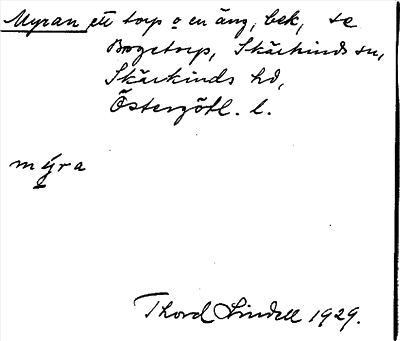 Myran ett torp o en äng, bek, se
Bogetorp, Skärkinds sn,
Skärkinds hd,
Östergötl. l.
mýra
Thord Lindell 1929.